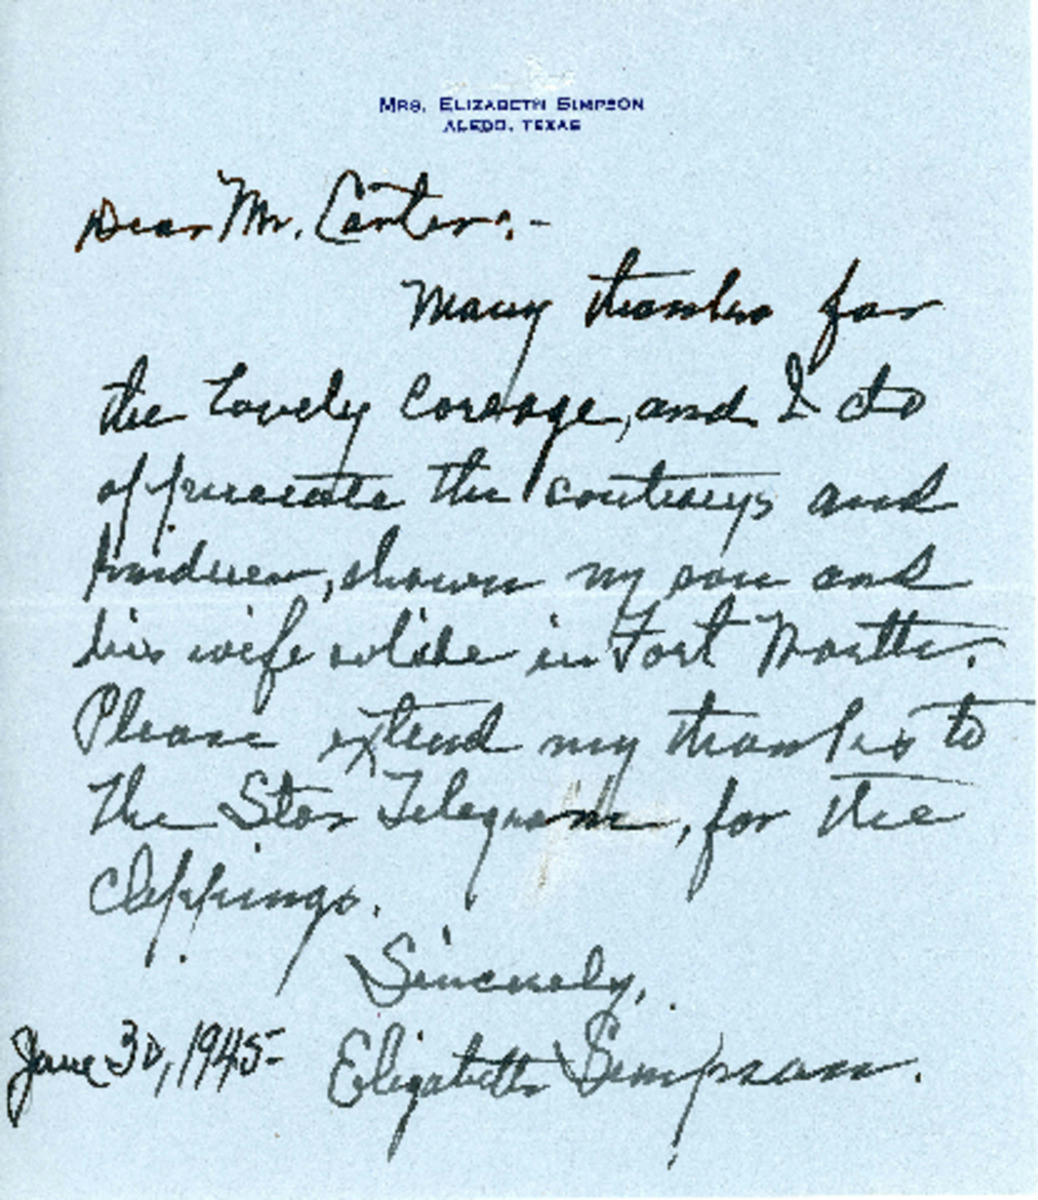 MRS. ELIZABETH SIMPSON
ALEDO, TEXAS
Dear Mr. Carter:-
Many thanks for
the lovely Corsage, and I do
appreciate the courtesys and
kindness, shown my son and
his wife while in Fort Worth.
Please extend my thanks to
the Star Telegram, for the
Clippings.
Sincerely,
June 30, 1945- Elizabeth Simpson.